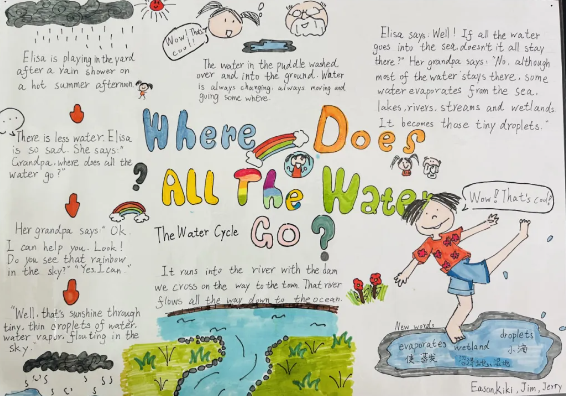 Elisa is playing in the yard
after a rain shower on
a hot summer afternoon.
There is less water. Elisa
is so sad. She says:"
Grandpa, where does all the
water go?"
Her grandpa says "Ok.
I can help you. Look!
Do you see that rainbow
in the sky?" "Yes.I can."
"Well, that's sunshine through
tiny, thin droplets of water.
water vapur, floating in the
sky."
Wow! That's
cool!
The water in the puddle washed
over and into the ground. Water
is always changing, always moving and
going some where.
Where Does
ALL The Water
GO?
The Water Cycle
It runs into the river with the dam
we cross on the way to the town. That river
flows all the way down to the ocean.
Elisa says: Well! If all the water
goes into the sea, doesn't it all stay
there?" Her grandpa says: "No. although
most of the water stays there, some
water evaporates from the sea,
lakes, rivers, streams and wetlands.
It becomes those tiny droplets."
?
Wow! That's cool!
New words
evaporates wetland droplets
使...蒸发 小滴
Eason, Kiki, Jim, Jerry